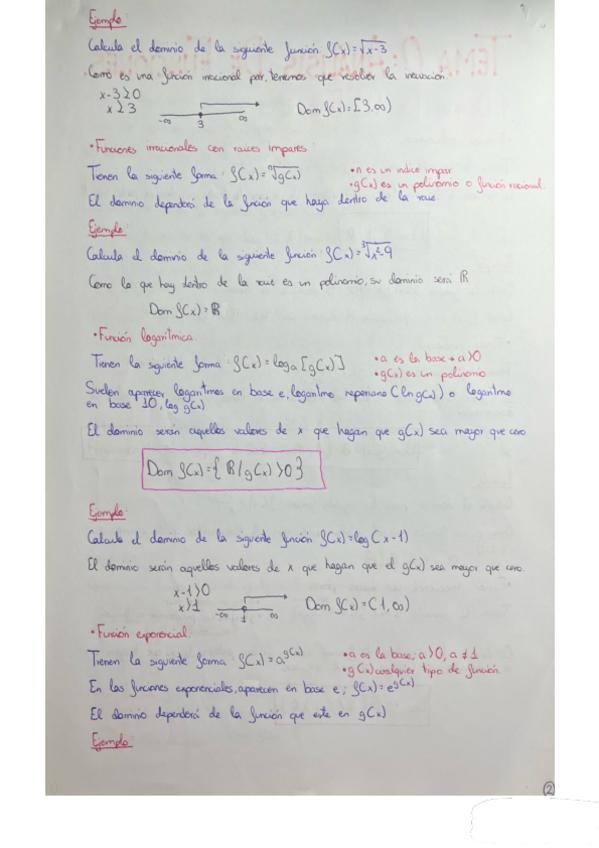 Ejemplo:
Calcula el dominio de la siguiente función f(x)=√x-3
Como es una función irracional par, tenemos que resolver la inecuación.
x-3≥0
x≥3
-∞ 3 ∞
Dom f(x)=[3,∞)
• Funciones irracionales con raíces impares:
Tienen la siguiente forma: f(x)=ⁿ√g(x)
• n es un índice impar
• g(x) es un polinomio o función racional.
El dominio dependerá de la función que haya dentro de la raíz.
Ejemplo:
Calcula el dominio de la siguiente función f(x)=³√x²-9
Como lo que hay dentro de la raíz es un polinomio, su dominio será ℝ
Dom f(x)=ℝ
• Función logarítmica.
Tienen la siguiente forma: f(x)=logₐ[g(x)]
• a es la base → a>0
• g(x) es un polinomio
Suelen aparecer logaritmos en base e, logaritmo neperiano (ln g(x)) o logaritmo
en base 10, log g(x)
El dominio serán aquellos valores de x que hagan que g(x) sea mayor que cero.
Dom f(x)={ℝ/g(x)>0}
Ejemplo:
Calcula el dominio de la siguiente función f(x)=log(x-1)
El dominio serán aquellos valores de x que hagan que el g(x) sea mayor que cero.
x-1>0
x>1
-∞ 1 ∞
Dom f(x)=(1,∞)
• Función exponencial.
Tienen la siguiente forma f(x)=a^g(x)
• a es la base; a>0, a≠1
• g(x) cualquier tipo de función.
En las funciones exponenciales, aparecen en base e; f(x)=e^g(x)
El dominio dependerá de la función que este en g(x)
Ejemplo
2